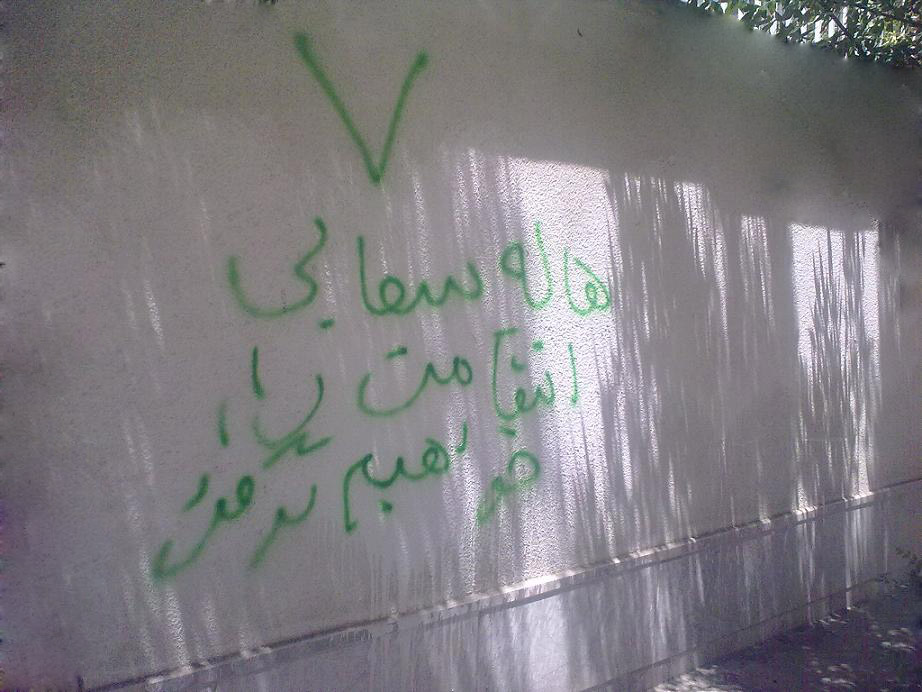 V
هاله سحابی
انتقامت را
خواهیم گرفت